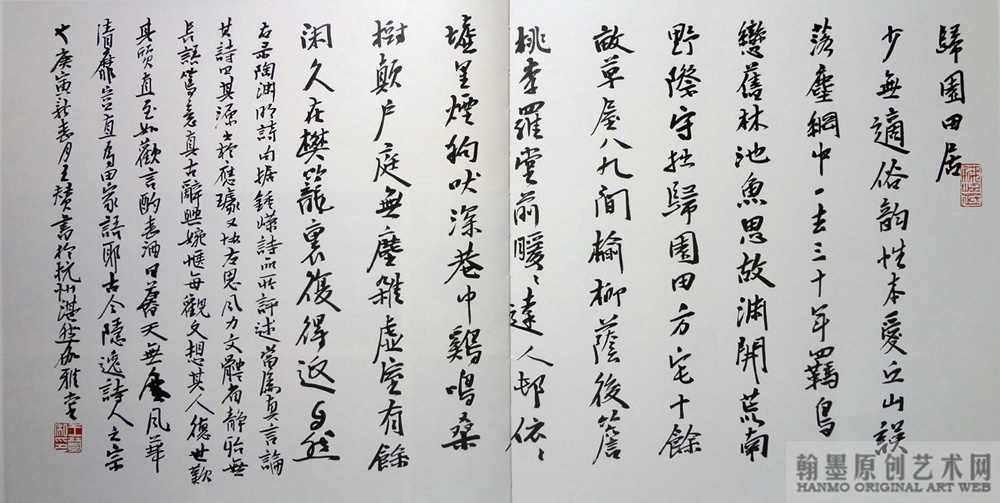 歸園田居
少無適俗韵性本愛丘山誤
落塵網中一去三十年羈鳥
戀舊林池魚思故淵開荒南
野際守拙歸園田方宅十餘
畝草屋八九間榆柳蔭後簷
桃李羅堂前曖〻遠人邨依〻
墟里煙狗吠深巷中鷄鳴桑
樹顛户庭無塵雜虛室有餘
闲久在樊籠裏復得返自然
右录陶渊明詩南梁鍾嶸詩品所評述當属真言論
其詩曰其源出於應璩又協左思風力文體省静殆無
長語篤意真古辭興婉愜每觀文想其人德世歎
其質直至如歡言酌春酒日暮天無雲風華
清靡豈直爲田家語耶古今隱逸詩人之宗
也庚寅新春月王贊書於杭州湛然雅堂
翰墨原创艺术网
HANMO ORIGINAL ART WEB